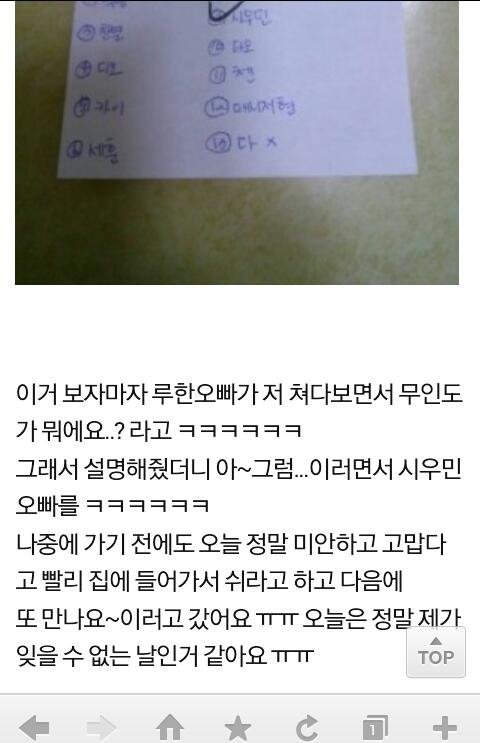 ③ 찬열
④ 디오
⑤ 카이
⑥ 세훈
시우민
⑩ 타오
⑪ 첸
⑫ 매니저형
⑬ 다 x
이거 보자마자 루한오빠가 저 쳐다보면서 무인도
가 뭐에요..? 라고 ㅋㅋㅋㅋㅋㅋ
그래서 설명해줬더니 아~그럼...이러면서 시우민
오빠를 ㅋㅋㅋㅋㅋㅋ
나중에 가기 전에도 오늘 정말 미안하고 고맙다
고 빨리 집에 들어가서 쉬라고 하고 다음에
또 만나요~이러고 갔어요 ㅠㅠ 오늘은 정말 제가
잊을 수 없는 날인거 같아요 ㅠㅠ
TOP
1